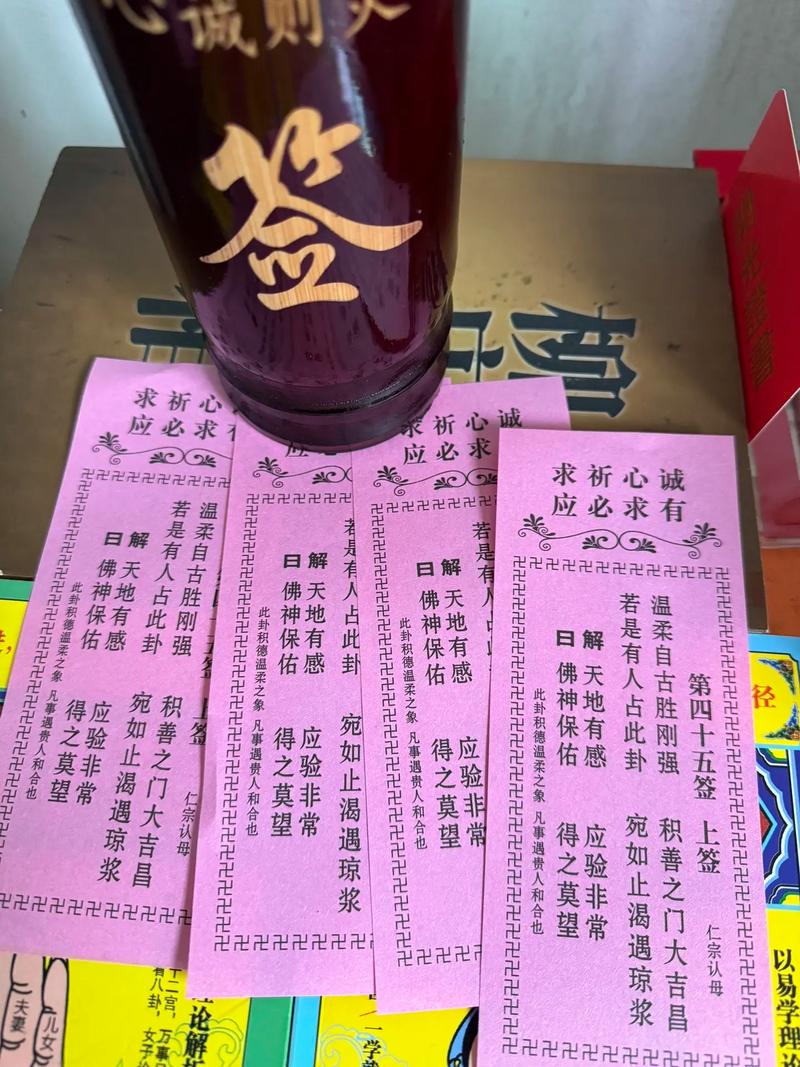 心诚则灵
签
柳
诚心祈求
有求必应
第四十五签 上签 仁宗认母
温柔自古胜刚强 积善之门大吉昌
若是有人占此卦 宛如止渴遇琼浆
解曰
天地有感 应验非常
佛神保佑 得之莫望
此卦积德温柔之象 凡事遇贵人和合也
诚心祈求
求必应
若是有人
解曰
天地有感 应验非常
佛神保佑 得之莫望
此卦积德温柔之象 凡事遇贵人和合也
必应
若是有人占此卦 宛如止渴遇琼浆
解曰
天地有感 应验非常
佛神保佑 得之莫望
此卦积德温柔之象 凡事遇贵人和合也
心祈求
有求必应
上签 仁宗认母
温柔自古胜刚强 积善之门大吉昌
若是有人占此卦 宛如止渴遇琼浆
解曰
天地有感 应验非常
佛神保佑 得之莫望
此卦积德温柔之象 凡事遇贵人和合也
径
以易学理论
一学
论解析
十二宫，万事
看八卦，女子
儿女
夫妻